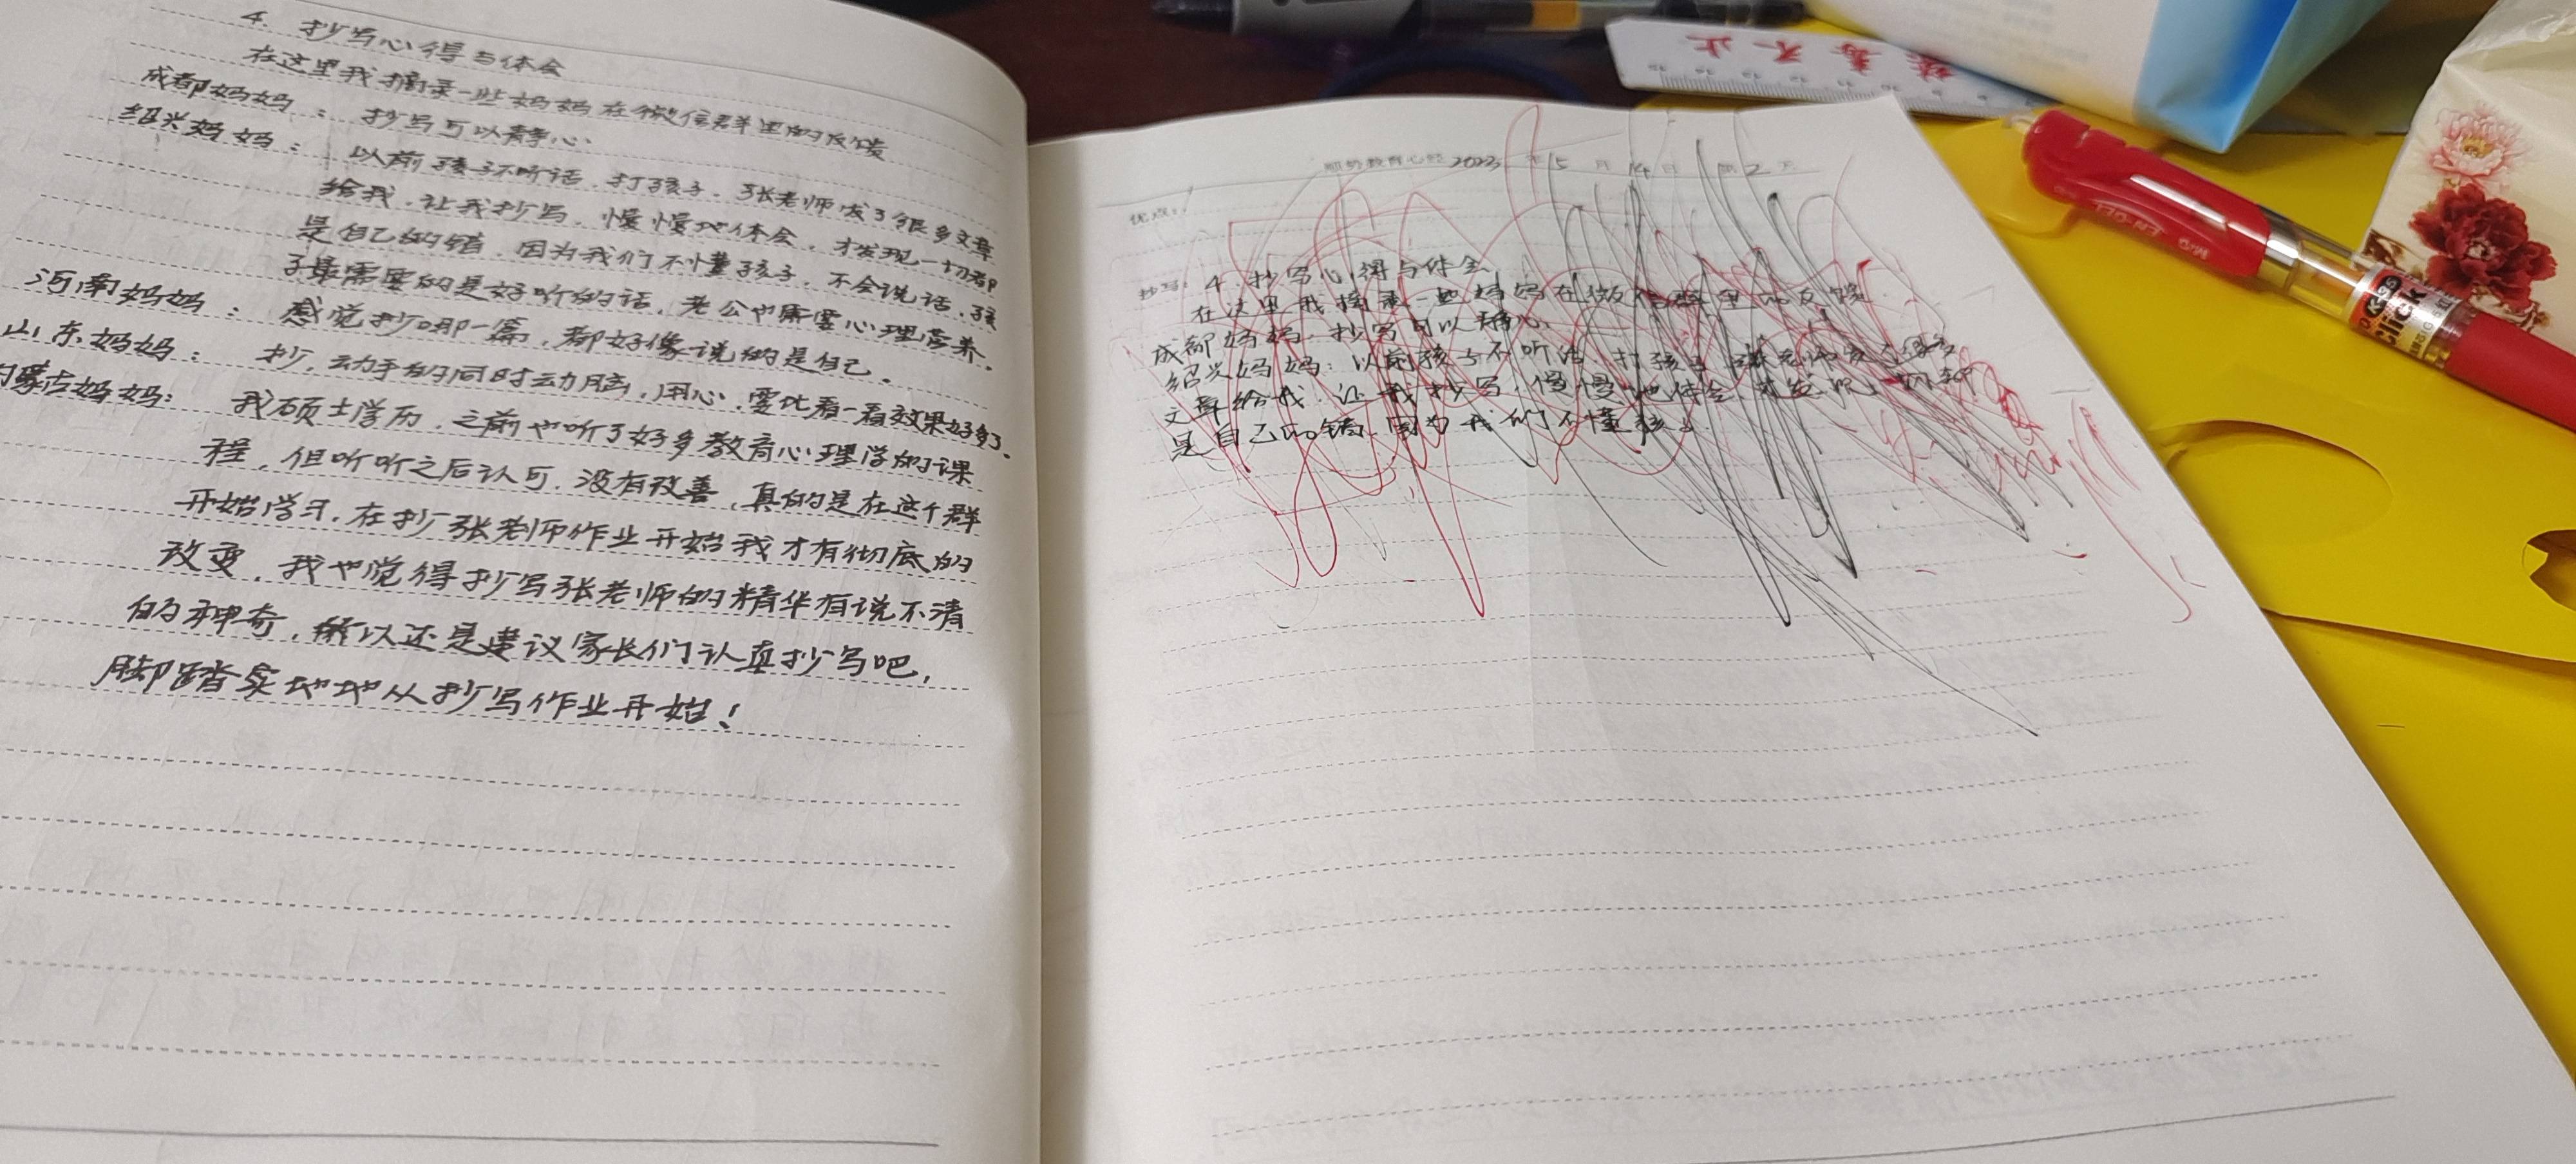 4. 抄写心得与体会
在这里我摘录一些妈妈在微信群里的反馈
成都妈妈： 抄写可以静心.
绍兴妈妈： 以前孩子不听话.打孩子.张老师发了很多文章
给我.让我抄写.慢慢地体会.才发现一切都
是自己的错.因为我们不懂孩子.不会说话.孩
子最需要的是好听的话.老公也需要心理营养.
河南妈妈： 感觉抄哪一篇,都好像说的是自己.
山东妈妈： 抄,动手的同时动脑,用心,要比看一看效果好多了.
内蒙古妈妈： 我硕士学历.之前也听了好多教育心理学的课
程,但听听之后认可.没有改善,真的是在这个群
开始学习.在抄张老师作业开始我才有彻底的
改变,我也觉得抄写张老师的精华有说不清
的神奇,所以还是建议家长们认真抄写吧,
脚踏实地地从抄写作业开始!
顺势教育心经 2023 年 5 月 14 日 第 2 天
优点:
抄写: 4.抄写心得与体会
在这里我摘录一些妈妈在微信群里的反馈.
成都妈妈.抄写可以静心.
绍兴妈妈:以前孩子不听话.打孩子.张老师发了很多
文章给我.让我抄写.慢慢地体会.才发现一切都
是自己的错.因为我们不懂孩子.
不止
Click